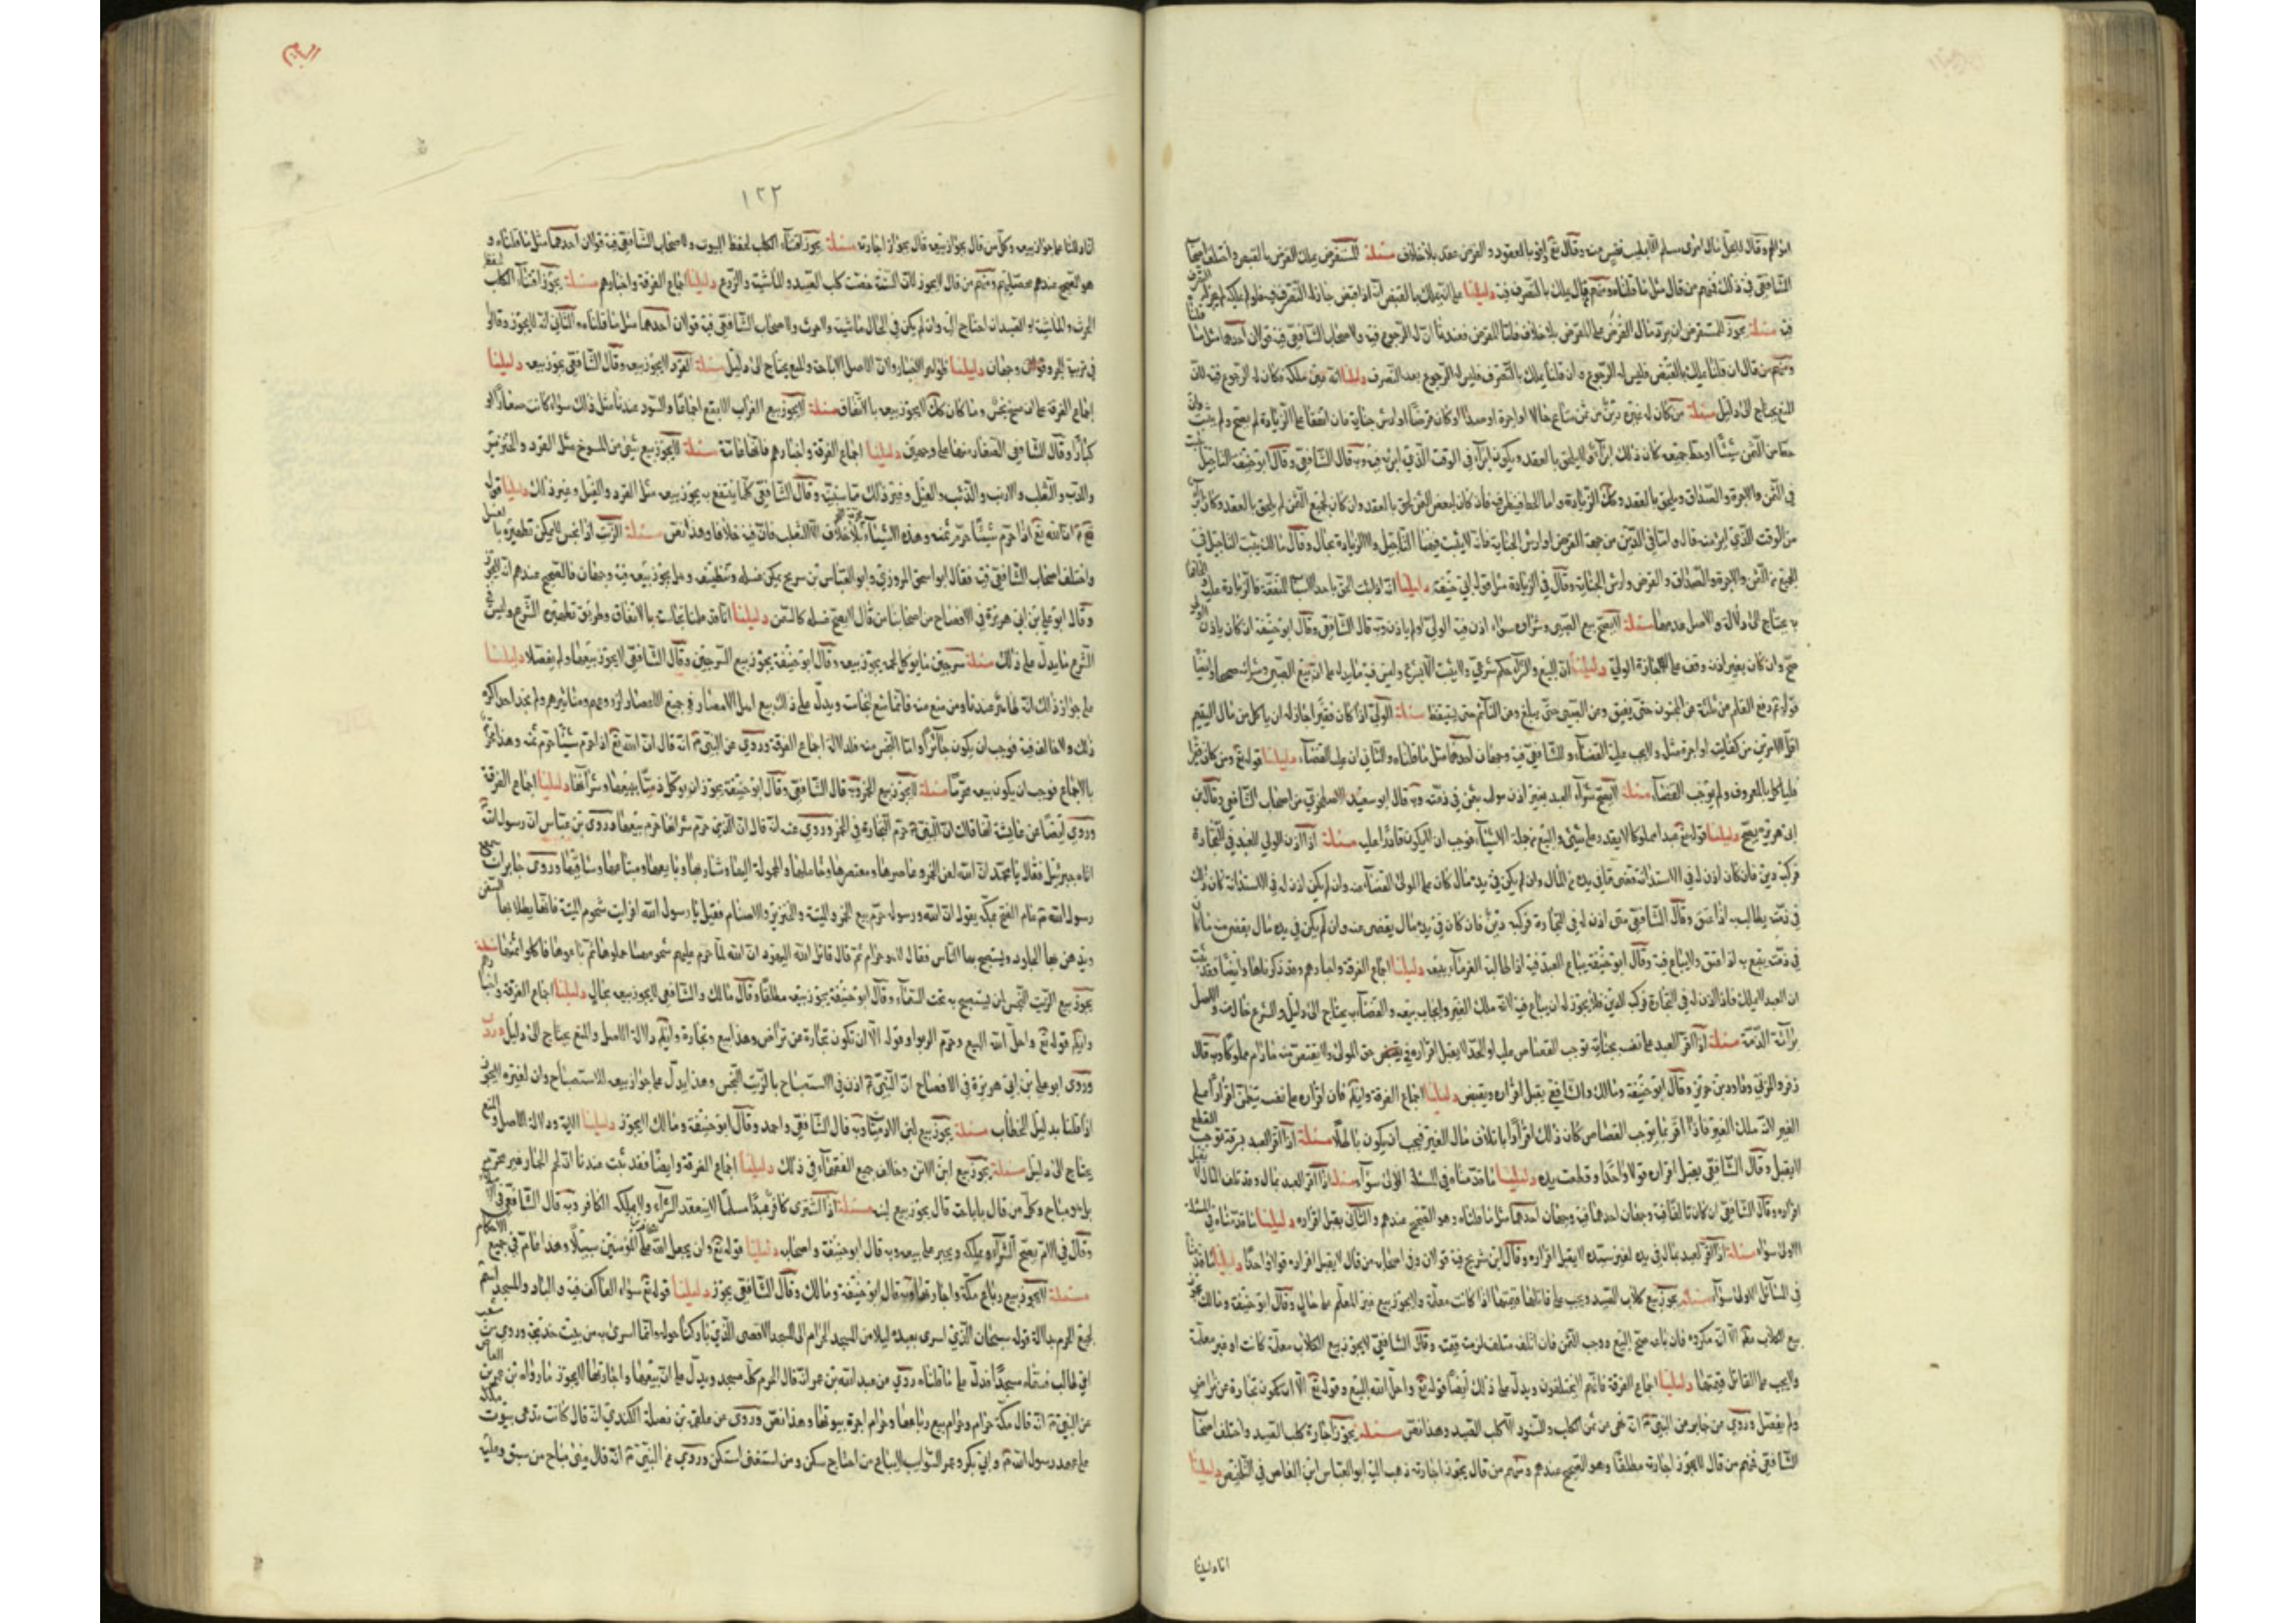 اموالهم وقال لا يحل مال امرئ مسلم الا بطيب نفس منه وقال تع اوفوا بالعقود والقرض عقد بلا خلاف مسئلة المستقرض يملك القرض بالقبض واختلف اصحاب
الشافعي في ذلك فمنهم من قال مثل ما قلناه ومنهم من قال يملك بالتصرف فيه دليلنا على انه يملك بالقبض انه اذا قبض جاز له التصرف فيه فلو لم يملكه لم يجز له التصرف
فيه مسئلة يجوز للمستقرض ان يرد مال القرض على المقرض بلا خلاف فاما المقرض فعندنا ان له الرجوع فيه ولاصحاب الشافعي فيه قولان احدهما مثل ما قلنا
ومنهم من قال ان قلنا يملك بالقبض فليس له الرجوع وان قلنا يملك بالتصرف فليس له الرجوع بعد التصرف دليلنا انه عين ملكه فكان له الرجوع فيه لان
المنع يحتاج الى دليل مسئلة من كان له على غيره دين من ثمن متاع حالا او اجرة او صداقا وكان قرضا او ارش جناية فان اتفقا على الزيادة لم يصح ولم يثبت وان
حط من الثمن شيئا او حط جميعه كان ذلك ابراء ولا يلحق بالعقد ويكون ابراء في الوقت الذي ابراه فيه وبه قال الشافعي وقال ابو حنيفة التاجيل يثبت
في الثمن والاجرة والصداق ويلحق بالعقد وكذلك الزيادة واما الحط فينظر فيه فان كان لبعض الثمن لحق بالعقد وان كان لجميع الثمن لم يلحق بالعقد وكان ابراء
من الوقت الذي ابراه منه قال واما في الدين من جهة القرض او ارش الجناية فانه لا يثبت فيها التاجيل ولا الزيادة بحال وقال مالك يثبت التاجيل في
الجميع في الثمن والاجرة والصداق والقرض وارش الجناية وقال في الزيادة مثل قول ابي حنيفة دليلنا
به يحتاج الى دلالة والاصل عدمها مسئلة لا يصح بيع الصبي وشراؤه سواء اذن فيه الولي او لم ياذن وبه قال الشافعي وقال ابو حنيفة ان كان باذن الولي
صح وان كان بغير اذنه وقف على اجازة الولي دليلنا ان البيع والشراء حكم شرعي ولا يثبت الا بشرع وليس فيه ما يدل على ان بيع الصبي وشراؤه صحيحان وايضا
قوله ع رفع القلم عن ثلثة عن المجنون حتى يفيق وعن الصبي حتى يبلغ وعن النائم حتى يستيقظ مسئلة الولي اذا كان فقيرا جاز له ان ياكل من مال اليتيم
اقل الامرين من كفايته او اجرة مثله ولا يجب عليه القضاء وللشافعي فيه وجهان احدهما مثل ما قلناه والثاني ان عليه القضاء دليلنا قوله تع ومن كان فقيرا
فلياكل بالمعروف ولم يوجب القضاء مسئلة لا يصح شراء العبد بغير اذن مولاه بثمن في ذمته وبه قال ابو سعيد الاصطخري من اصحاب الشافعي وقال ابن
ابي هريرة يصح دليلنا قوله تع عبدا مملوكا لا يقدر على شيء والبيع من جملة الاشياء فوجب ان لا يكون قادرا عليه مسئلة اذا اذن المولى للعبد في التجارة
فركبه دين فان كان اذن له في الاستدانة قضى ما في يده من المال وان لم يكن في يده مال كان على المولى القضاء عنه وان لم يكن اذن له في الاستدانة كان ذلك
في ذمته يطالب به اذا عتق وقال الشافعي متى اذن له في التجارة فركبه دين فان كان في يده مال يقضى منه وان لم يكن في يده مال
في ذمته يتبع به اذا اعتق ولا يباع فيه وقال ابو حنيفة يباع العبد فيه اذا طالب الغرماء ببيعه دليلنا اجماع الفرقة واخبارهم وقد ذكرناها وايضا فقد ثبت
ان العبد لا يملك فاذا اذن له في التجارة فركبه الدين فلا يجوز له ان يباع فيه لانه ملك الغير وايجاب بيعه والقضاء به يحتاج الى دليل والشرع خال منه والاصل
براءة الذمة مسئلة اذا اقر العبد على نفسه بجناية توجب القصاص عليه او الحد لا يقبل اقراره في حق المولى ولا يقتص منه ما دام مملوكا وبه قال
زفر والمزني وداود بن جرير وقال ابو حنيفة ومالك والشافعي يقبل اقراره ويقتص دليلنا اجماع الفرقة وايضا فان اقراره على نفسه يتعلق اقرارا على
الغير لانه ملك الغير فاذا اقر بما يوجب القصاص كان ذلك اقرارا باتلاف مال الغير فيجب ان يكون باطلا مسئلة اذا اقر العبد بسرقة توجب القطع
لا يقبل وقال الشافعي يقبل اقراره قولا واحدا وقطعت يده دليلنا ما قدمناه في المسئلة الاولى سواء مسئلة اذا اقر العبد بمال وقد تلف المال لا يقبل
اقراره وقال الشافعي
الاولى سواء مسئلة اذا اقر العبد بمال في يده لغير سيده لا يقبل اقراره وقال ابن شريح فيه قولان وفي اصحابه من قال لا يقبل اقراره قولا واحدا دليلنا ما قدمناه
في المسائل الاولى سواء مسئلة يجوز بيع كلاب الصيد ويجب على قاتلها قيمتها اذا كانت معلمة ولا يجوز بيع غير المعلم على حال وقال ابو حنيفة ومالك يجوز
بيع الكلاب مطلقا الا انه مكروه فان باعه صح البيع ووجب الثمن فان اتلفه متلف لزمته قيمته وقال الشافعي لا يجوز بيع الكلاب معلمة كانت او غير معلمة
ولا يجب على القاتل قيمتها دليلنا اجماع الفرقة فانهم لا يختلفون ويدل على ذلك ايضا قوله تع واحل الله البيع وقوله تع الا ان تكون تجارة عن تراض
ولم يفصل وروي عن جابر عن النبي ص انه نهى عن ثمن الكلب والسنور الا كلب الصيد وهذا نص مسئلة يجوز اجارة كلب الصيد واختلف اصحاب
الشافعي فمنهم من قال لا يجوز اجارته مطلقا وهو الصحيح عندهم ومنهم من قال يجوز اجارته ذهب اليه ابو العباس ابن القاص في التلخيص دليلنا
انا دللنا
البيع
١٢٢
انا دللنا على جواز بيعه وكل من قال بجواز بيعه قال بجواز اجارته مسئلة يجوز اقتناء الكلب لحفظ البيوت ولاصحاب الشافعي فيه قولان احدهما مثل ما قلناه و
هو الصحيح عندهم ومنهم من قال لا يجوز لان السنة خصت كلب الصيد والماشية والزرع دليلنا اجماع الفرقة واخبارهم مسئلة يجوز اقتناء الكلب لحفظ
الحرث والماشية او الصيد ان احتاج اليه وان لم يكن في الحال ماشية ولا حرث ولاصحاب الشافعي فيه قولان احدهما مثل ما قلناه والثاني انه لا يجوز وقالوا
في تربية الجرو وجهان دليلنا ظواهر الاخبار وان الاصل الاباحة والمنع يحتاج الى دليل مسئلة القرد لا يجوز بيعه وقال الشافعي يجوز بيعه دليلنا
اجماع الفرقة على انه مسخ نجس وما كان كذلك لا يجوز بيعه بالاتفاق مسئلة لا يجوز بيع الغراب الابقع اجماعا والسود عندنا مثل ذلك سواء كانت صغارا او
كبارا وقال الشافعي دليلنا اجماع الفرقة واخبارهم فانها عامة مسئلة لا يجوز بيع شيء من المسوخ مثل القرد والخنزير
والدب والثعلب والارنب والذئب والفيل وغير ذلك مما سنبينه وقال الشافعي كلما ينتفع به يجوز بيعه مثل القرد والفيل وغير ذلك دليلنا قول
ع ان الله تع اذا حرم شيئا حرم ثمنه وهذه الاشياء محرمة اللحم بلا خلاف الا الثعلب فان فيه خلافا وهذا نص مسئلة الزيت اذا نجس لا يمكن تطهيره بالغسل
واختلف اصحاب الشافعي فيه فقال ابو اسحق المروزي وابو العباس بن سريج يمكن غسله وتنظيفه وهل يجوز بيعه فيه وجهان فالصحيح عندهم انه لا يجوز
وقال ابو علي بن ابي هريرة في الافصاح من اصحابنا من قال لا يصح غسله كالسمن دليلنا انا قد علمنا نجاسته بالاتفاق وطريق تطهيره الشرع وليس في
الشرع ما يدل على ذلك مسئلة سرجين ما يؤكل لحمه يجوز بيعه وقال ابو حنيفة يجوز بيع السرجين وقال الشافعي لا يجوز بيعها ولم يفصلا دليلنا
على جواز ذلك انه طاهر عندنا ومن منع منه فانما منع لنجاسته ويدل على ذلك بيع اهل الامصار في جميع الاعصار لزروعهم ومثمارهم ولم نجد احدا كره
ذلك ولا خالف فيه فوجب ان يكون جائزا واما النجس منه فلدلالة اجماع الفرقة وروي عن النبي ص انه قال ان الله تع اذا حرم شيئا حرم ثمنه وهذا محرم
بالاجماع فوجب ان يكون بيعه محرما مسئلة لا يجوز بيع الخمر وبه قال الشافعي وقال ابو حنيفة يجوز ان يوكل ذميا ببيعها وشرائها دليلنا اجماع الفرقة
وروي ايضا عن عايشة انها قالت ان النبي ص حرم التجارة في الخمر وروي عنه انه قال ان الذي حرم شربها حرم بيعها وروى ابن عباس ان رسول الله ص
اتاه جبرئيل فقال يا محمد ان الله لعن الخمر وعاصرها ومعتصرها وحاملها والمحمولة اليه وشاربها وبايعها ومبتاعها وساقيها وروى جابر انه سمع
رسول الله ص عام الفتح بمكة يقول ان الله ورسوله حرم بيع الخمر والميتة والخنزير والاصنام فقيل يا رسول الله افرايت شحوم الميتة فانها يطلى بها السفن
ويدهن بها الجلود ويستصبح بها الناس فقال لا هو حرام ثم قال قاتل الله اليهود ان الله لما حرم عليهم شحومها جملوها ثم باعوها فاكلوا اثمانها مسئلة
يجوز بيع الزيت النجس لمن يستصبح به تحت السماء وقال ابو حنيفة يجوز بيعه مطلقا وقال مالك والشافعي لا يجوز بيعه بحال دليلنا اجماع الفرقة واخبارهم
وايضا قوله تع واحل الله البيع وحرم الربوا وقوله الا ان تكون تجارة عن تراض وهذا بيع وتجارة وايضا دلالة الاصل والمنع يحتاج الى دليل
وروى ابو علي بن ابي هريرة في الافصاح ان النبي ص اذن في الاستصباح بالزيت النجس وهذا يدل على جواز بيعه للاستصباح وان لغيره لا يجوز
اذا قلنا بدليل الخطاب مسئلة يجوز بيع لبن الادميات وبه قال الشافعي واحمد وقال ابو حنيفة ومالك لا يجوز دليلنا الاية ودلالة الاصل والمنع
يحتاج الى دليل مسئلة يجوز بيع لبن الاتن وخالف جميع الفقهاء في ذلك دليلنا اجماع الفرقة وايضا فقد ثبت عندنا ان لحم الحمار غير محرم
بل هو مباح وكل من قال باباحته قال يجوز بيع لبنه مسئلة اذا اشترى كافر عبدا مسلما لا ينعقد الشراء ولا يملكه الكافر وبه قال الشافعي في
وقال في الام يصح الشراء ويملكه ويجبر على بيعه وبه قال ابو حنيفة واصحابه دليلنا قوله تع ولن يجعل الله للكافرين على المؤمنين سبيلا وهذا عام في جميع الاحكام
مسئلة لا يجوز بيع رباع مكة واجارتها وبه قال ابو حنيفة ومالك وقال الشافعي يجوز دليلنا قوله تع سواء العاكف فيه والباد والمسجد اسم
لجميع الحرم بدلالة قوله سبحان الذي اسرى بعبده ليلا من المسجد الحرام الى المسجد الاقصى الذي باركنا حوله وانما اسرى به من بيت خديجة وروي من شعب
ابي طالب فسماه مسجدا فدل على ما قلناه وروي عن عبد الله بن عمر انه قال الحرم كله مسجد ويدل على ان بيعها واجارتها لا يجوز ما رواه
عن النبي ص انه قال مكة حرام وحرام بيع رباعها وحرام اجرة بيوتها وهذا نص وروي عن علقمة بن نضلة الكندي انه قال كانت تدعى بيوت مكة
على عهد رسول الله ص وابي بكر وعمر السوايب لا يباع من احتاج سكن ومن استغنى اسكن وروي عن النبي ص انه قال منى مباح من سبق